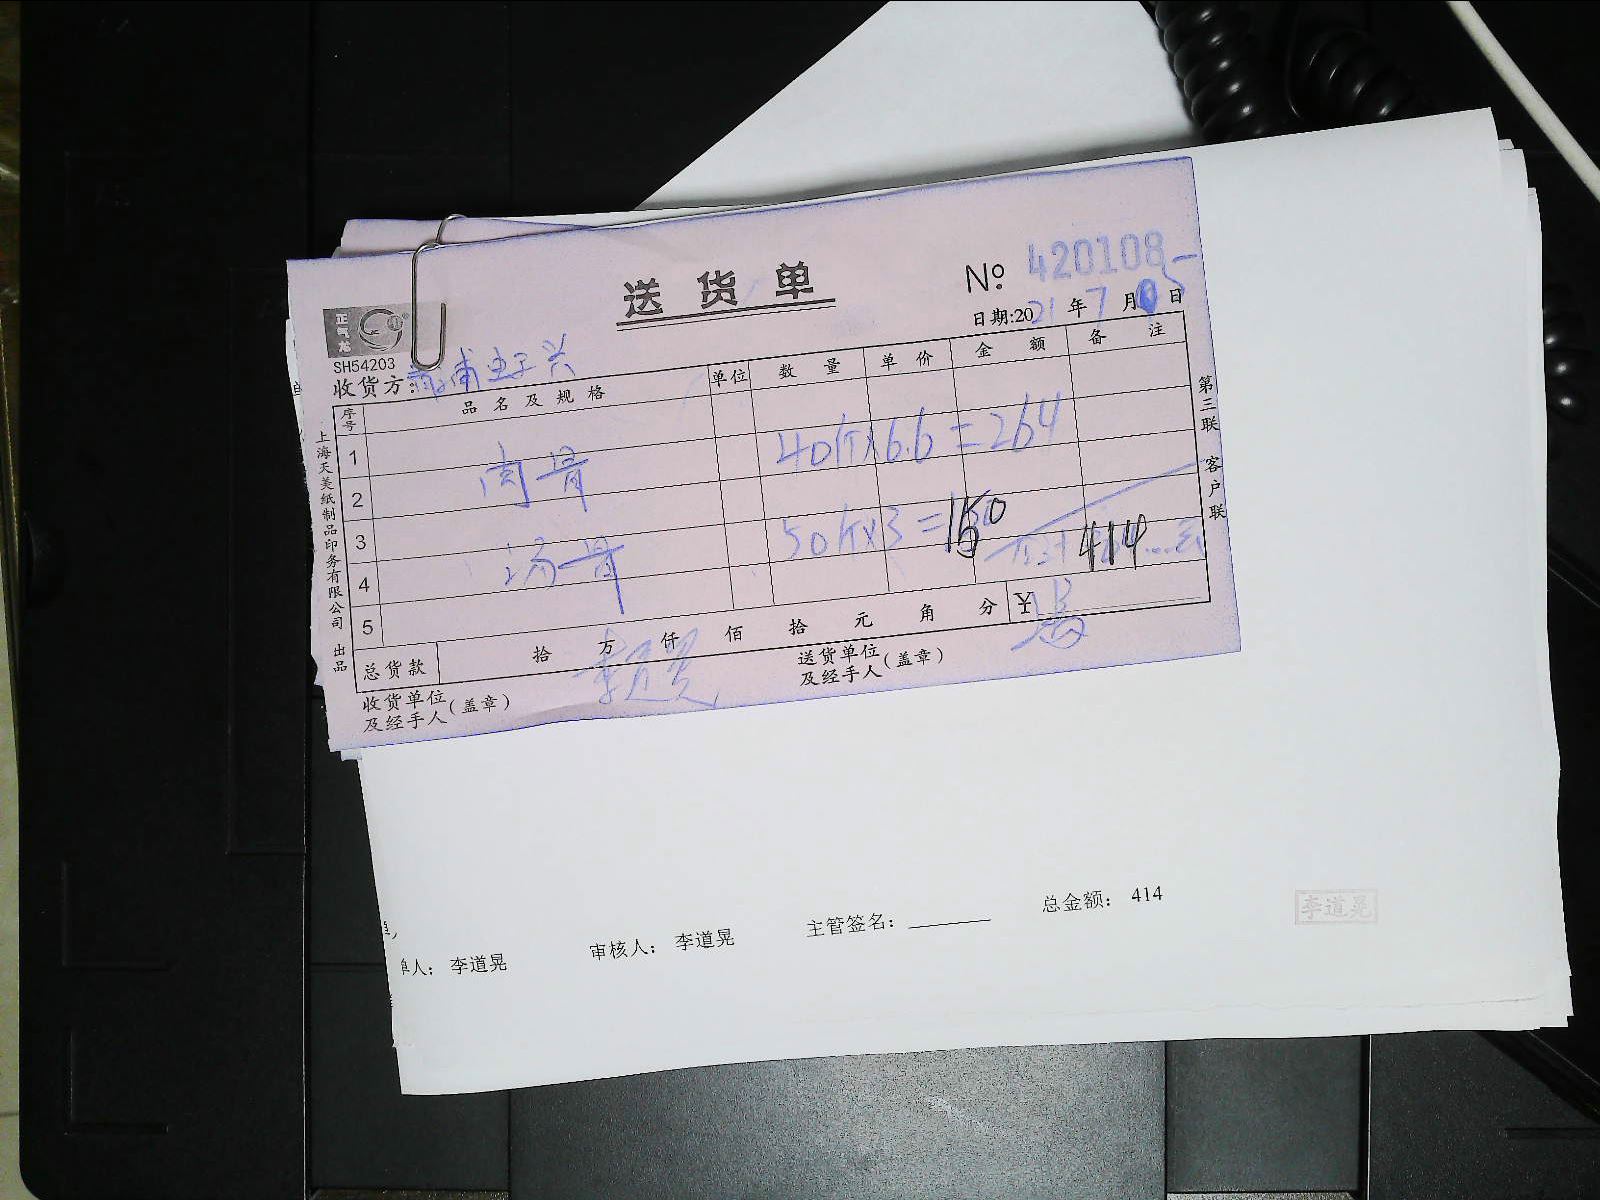 送货单
№ 420108
正气龙
SH54203
日期:2021年7月5日
收货方:
序号 品名及规格 单位 数量 单价 金额 备注
1
肉骨 40斤×6.6=264
2
3
汤骨 50斤×3=150
4
414
5
总货款 拾万仟佰拾元角分 ¥
收货单位
及经手人(盖章)
李道晃
送货单位
及经手人(盖章)
冯
上海天美纸制品印务有限公司 出品
第三联 客户联
单人: 李道晃 审核人: 李道晃 主管签名: 总金额: 414
李道晃